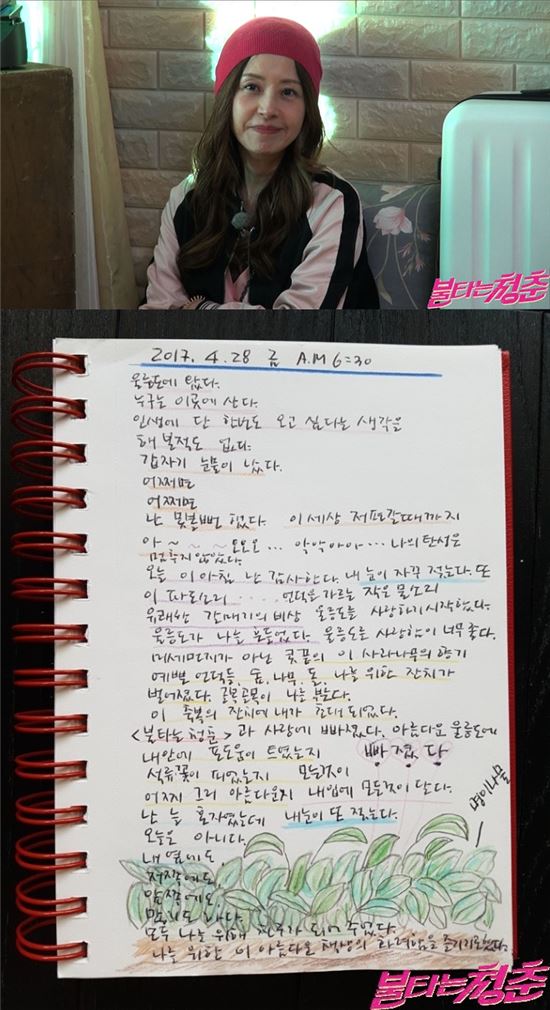 불타는청춘
2017. 4. 28 금 A.M 6:30
울릉도에 왔다.
누구는 이곳에 산다.
인생에 단 한번도 오고 싶다는 생각을
해 본적도 없다.
갑자기 눈물이 났다.
어쩌면
어쩌면
난 못볼뻔 했다. 이 세상 저편갈때까지
아~ ~ ~ 오오오... 악악아아... 나의 탄성은
멈추지 않았다.
오늘 이 아침 난 감사한다. 내 눈이 자꾸 젖는다. 또
이 파도소리 ..... 언덕을 가르는 작은 물소리
유쾌한 갈매기의 비상 울릉도를 사랑하기 시작했다.
울릉도가 나를 흔들었다. 울릉도를 사랑함이 너무 좋다.
미세먼지가 아닌 콧끝의 이 사라나무의 향기
예쁜 언덕들, 돌, 나무, 돌, 나를 위한 잔치가
벌어졌다. 골목골목이 나를 부른다.
이 축복의 잔치에 내가 초대 되었다.
<불타는 청춘>과 사랑에 빠졌다. 아름다운 울릉도에
내안에 포도움이 트였는지 빠졌다
석류꽃이 피었는지 모든것이
어찌 그리 아름다운지 내입에 모든것이 달다.
난 늘 혼자였는데 내눈이 또 젖는다.
명이나물
오늘은 아니다.
내 옆에도
저쪽에도
앞쪽에도
모두 나를 위해 친구가 되어 주었다.
나를 위한 이 아름다운 생의 화려함을
불타는청춘